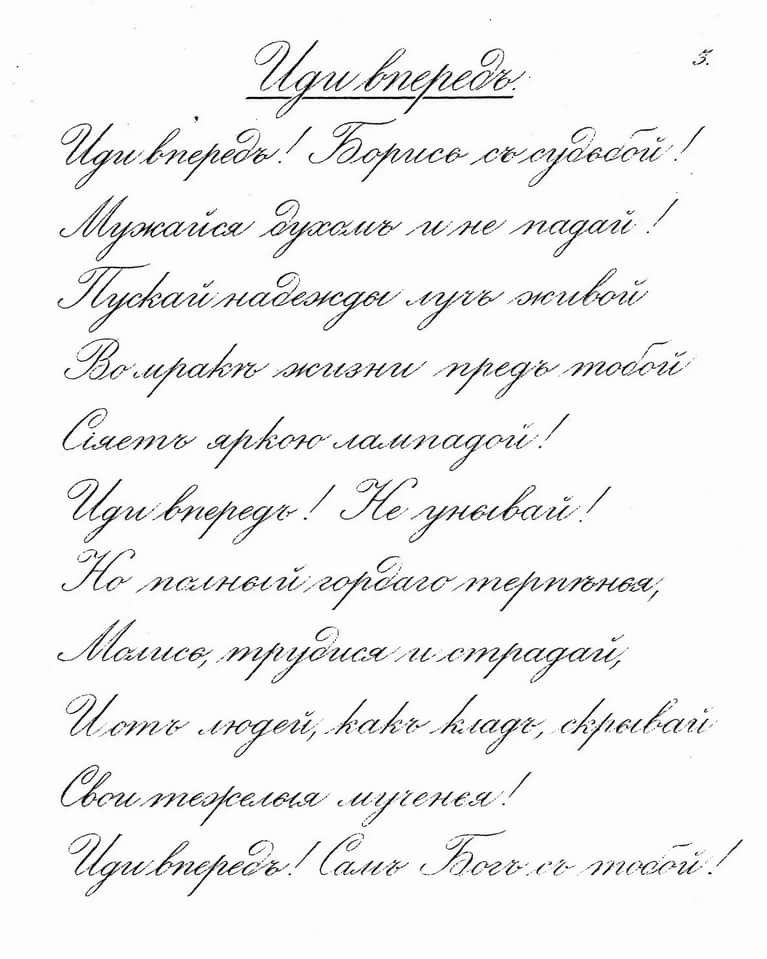 3.
Иди впередъ.
Иди впередъ! Борись съ судьбой!
Мужайся духомъ и не падай!
Пускай надежды лучъ живой
Во мракѣ жизни предъ тобой
Сіяетъ яркою лампадой!
Иди впередъ! Не унывай!
Но полный гордаго терпѣнья,
Молись, трудися и страдай,
И отъ людей, какъ кладъ, скрывай
Свои тежелыя мученья!
Иди впередъ! Самъ Богъ съ тобой!